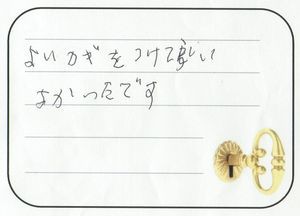 よいカギをつけて頂い
よかったです